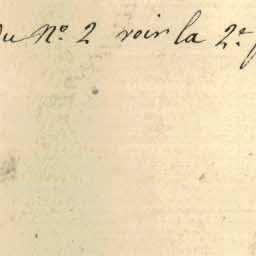 Du Nº. 2 voir la 2.e